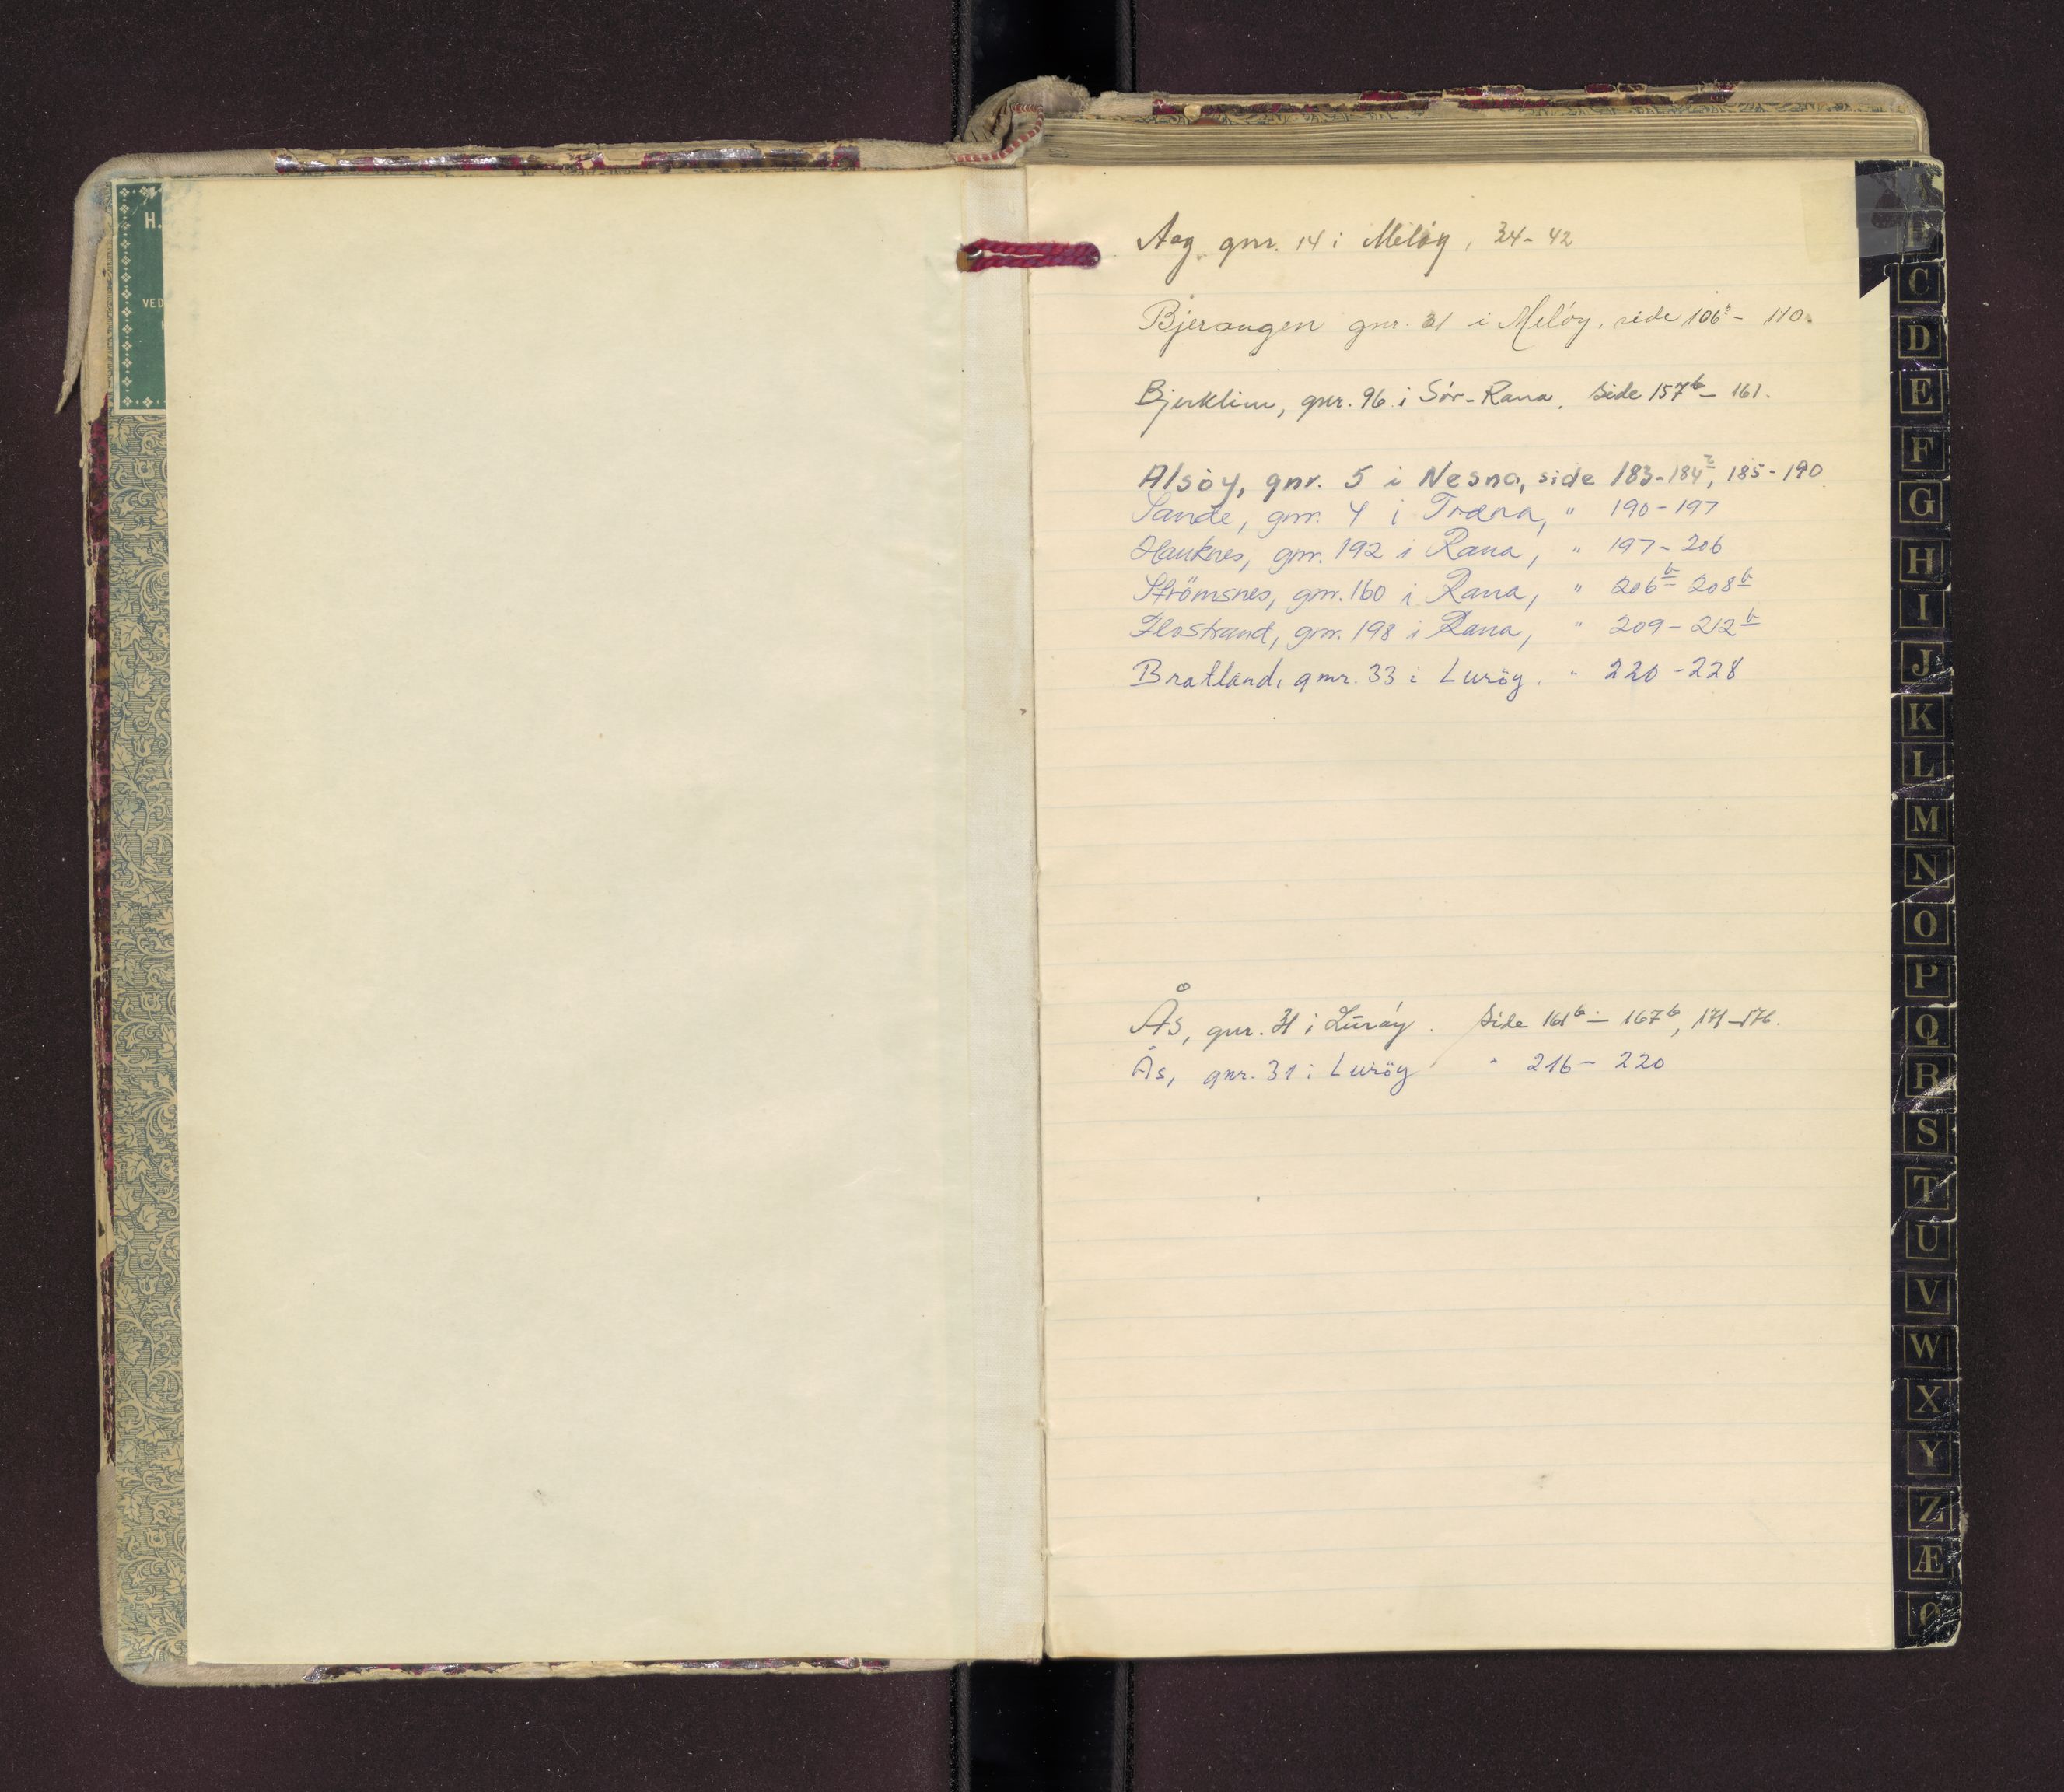 H.
VED
Aag gnr. 14 i Meløy, 34-42
Bjerangen gnr. 31 i Meløy, side 106b - 110.
Bjerklim, gnr. 96 i Sør-Rana. Side 157b - 161.
Alsöy, gnr. 5 i Nesna, side 183-184, 185-190
Sande, gnr. 4 i Træna, " 190-197
Hauknes, gnr. 192 i Rana, " 197-206
Strömsnes, gnr. 160 i Rana, " 206b - 208b
Flostrand, gnr. 198 i Rana, " 209-212b
Bratland, gnr. 33 i Luröy. " 220-228
Ås, gnr. 31 i Lurøy. Side 161b - 167b, 171-176.
Ås, gnr. 31 i Luröy " 216-220
C
D
E
F
G
H
I
J
K
L
M
N
O
P
Q
R
S
T
U
V
W
X
Y
Z
Æ
Ø